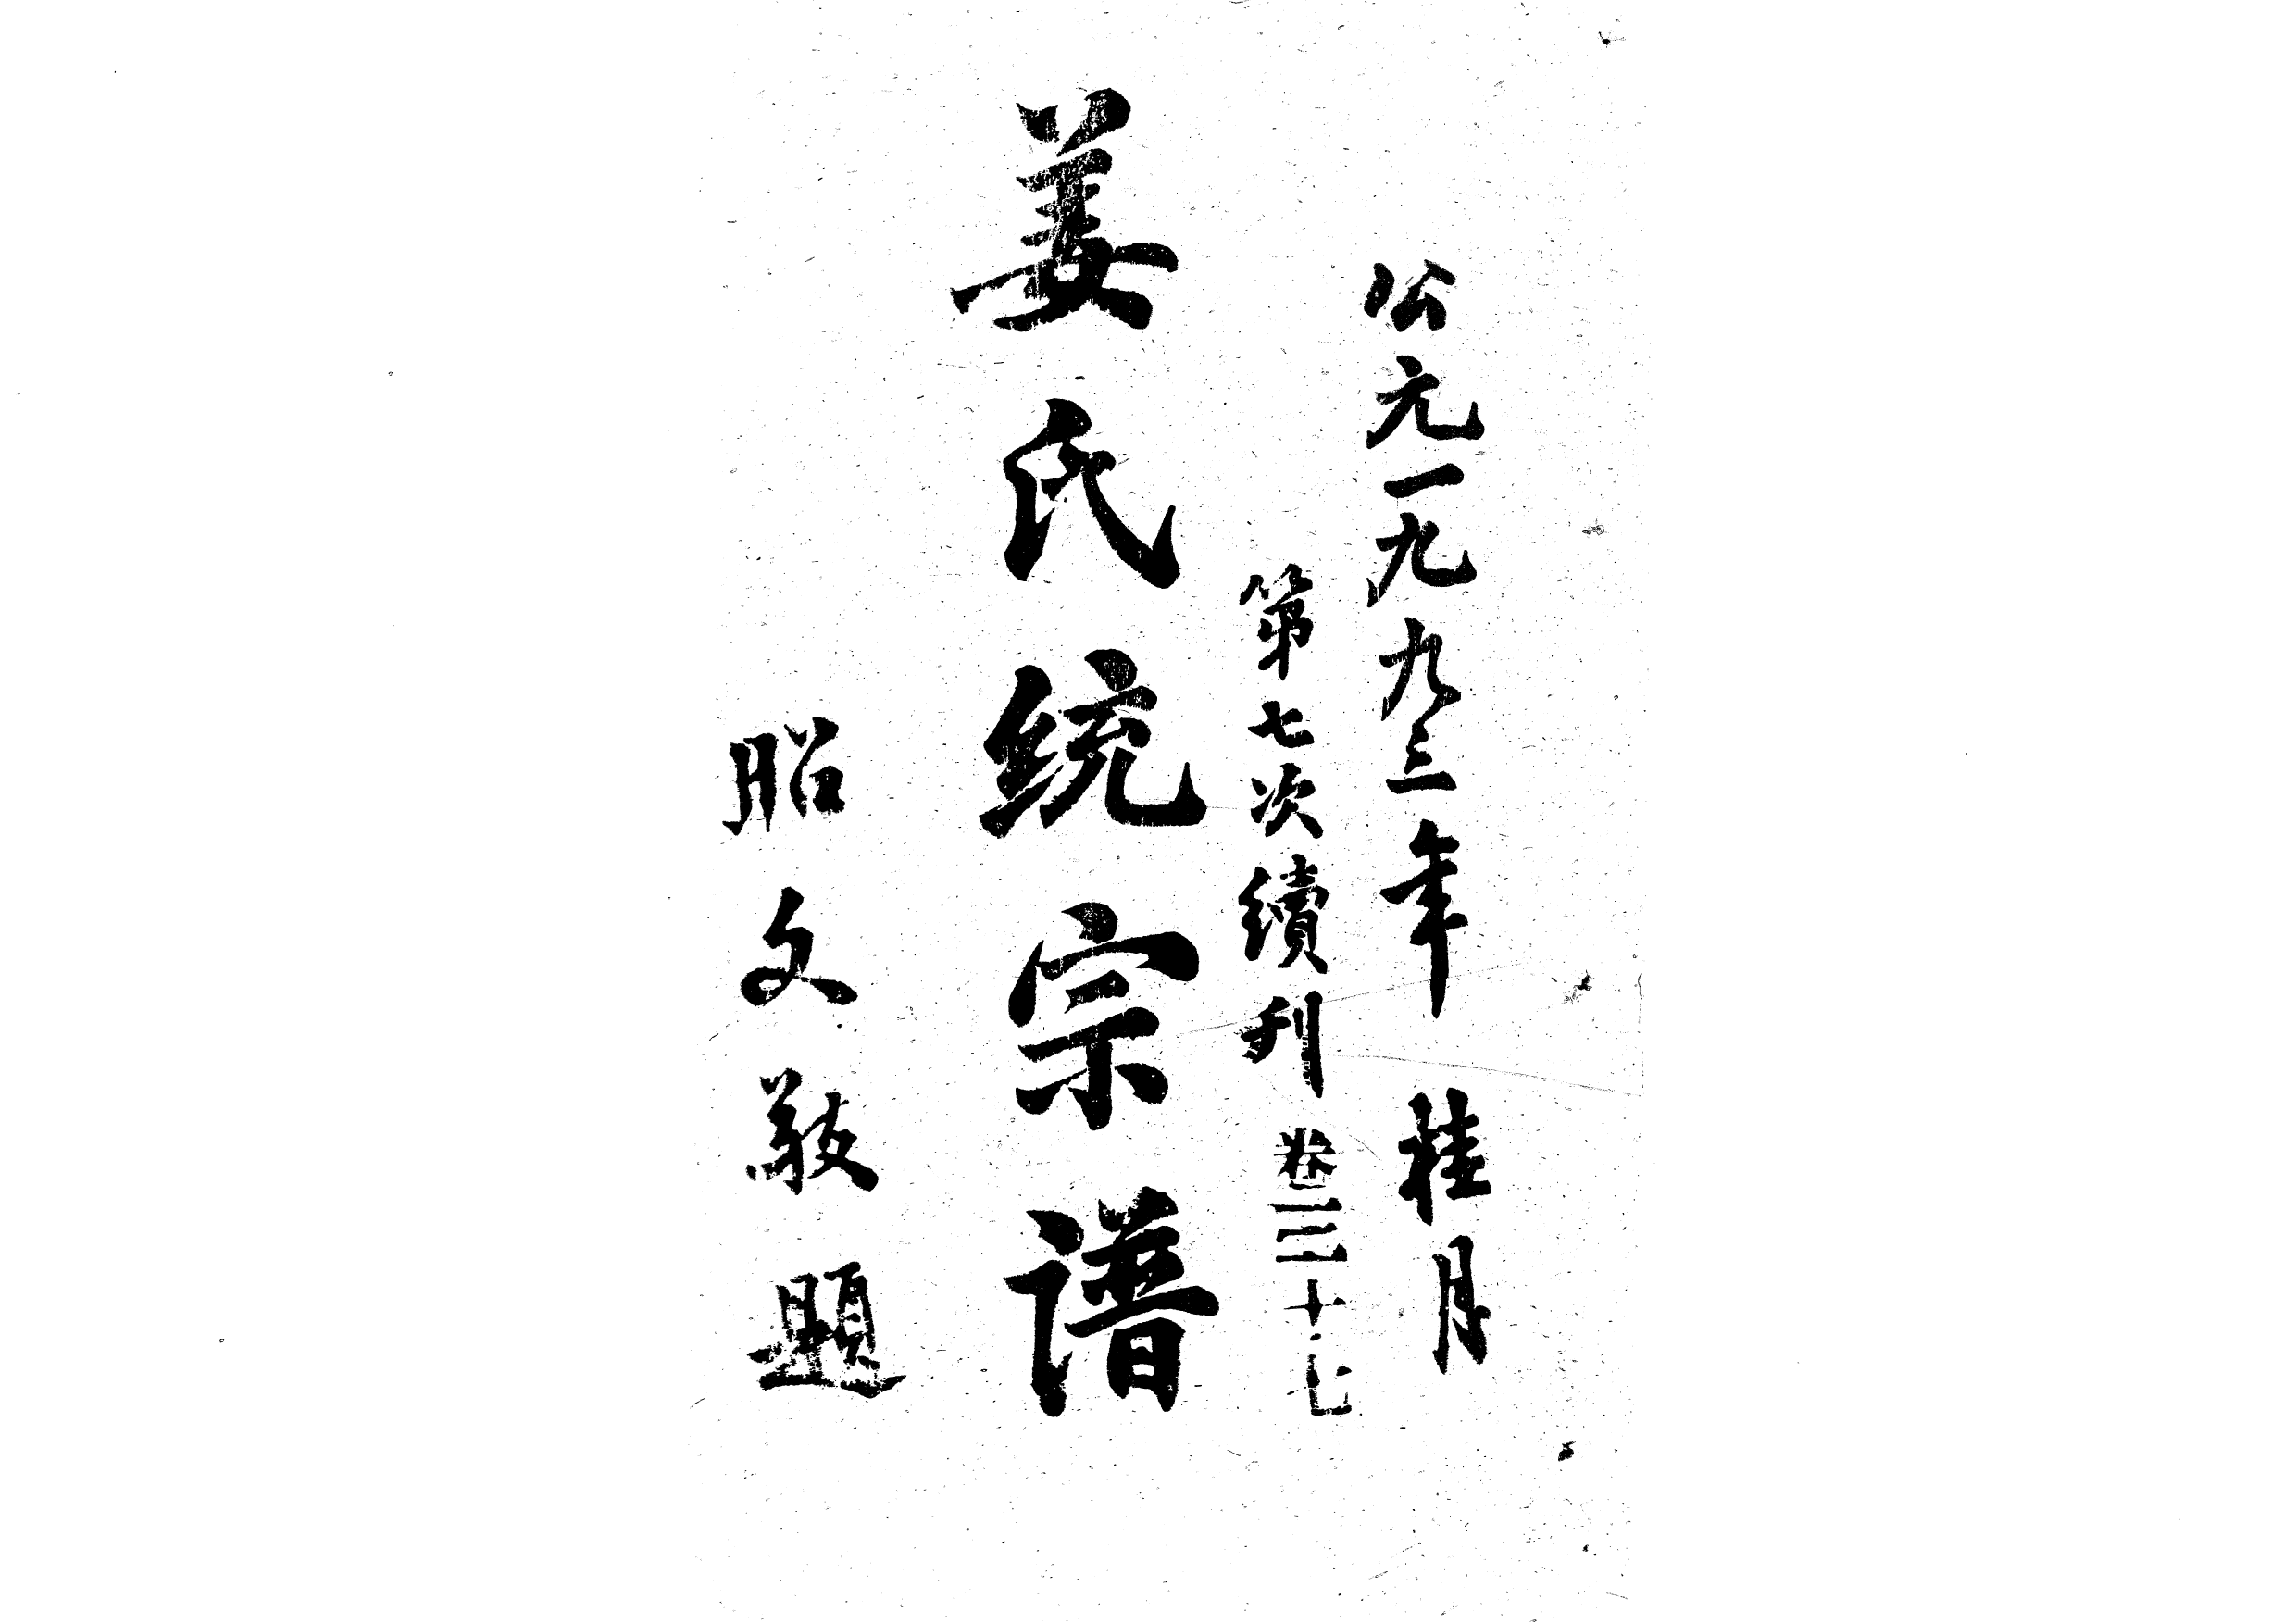 公元一九九三年 桂月
第七次續刊 卷三十七
姜氏统宗谱
昭文敬题